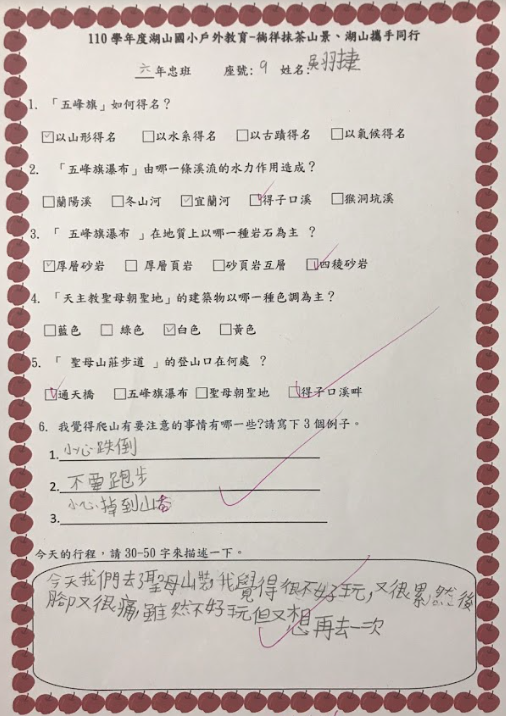 110 學年度湖山國小戶外教育-徜徉抹茶山景、湖山攜手同行
六年忠班 座號: 9 姓名: 吳羽捷
1. 「五峰旗」如何得名？
☑以山形得名 □以水系得名 □以古蹟得名 □以氣候得名
2. 「五峰旗瀑布」由哪一條溪流的水力作用造成？
□蘭陽溪 □冬山河 ☑宜蘭河 ☑得子口溪 □猴洞坑溪
3. 「 五峰旗瀑布 」在地質上以哪一種岩石為主 ？
☑厚層砂岩 □ 厚層頁岩 □砂頁岩互層 ☑四稜砂岩
4. 「天主教聖母朝聖地」的建築物以哪一種色調為主？
□藍色 □ 綠色 ☑白色 □黃色
5. 「 聖母山莊步道 」的登山口在何處 ？
☑通天橋 □五峰旗瀑布 □聖母朝聖地 ☑得子口溪畔
6. 我覺得爬山有要注意的事情有哪一些?請寫下 3 個例子。
1. 小心跌倒
2. 不要跑步
3. 小心掉到山谷
今天的行程，請 30-50 字來描述一下。
今天我們去了聖母山莊我覺得很不好玩，又很累然後
腳又很痛雖然不好玩但又想再去一次